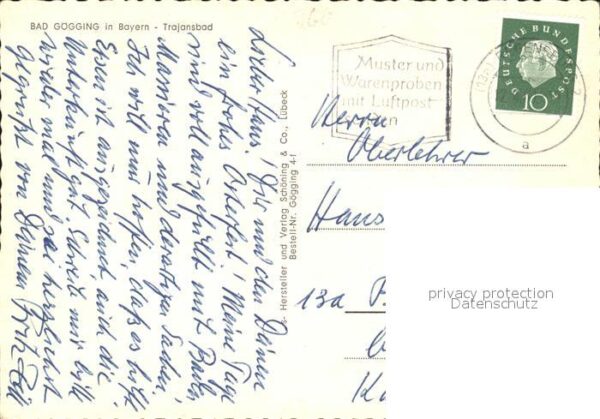 BAD GÖGGING in Bayern - Trajansbad
Lieber Hans! Dir und den Deinen
ein frohes Osterfest! Meine Tage
sind voll ausgefüllt mit Baden,
Massieren und derartigen Sachen.
Ich will nun hoffen, daß es hilft.
Essen ist ausgezeichnet auch die
Unterkunft gut. Schreib mir bitte
wieder mal und sei herzlichst
gegrüßt von Deinem Fritz
Hersteller und Verlag Schöning & Co., Lübeck
Bestell-Nr. Gögging 4-1
Muster und
Warenproben
mit Luftpost
DEUTSCHE BUNDESPOST
10
a
Herrn
Oberlehrer
Hans
13a
privacy protection
Datenschutz